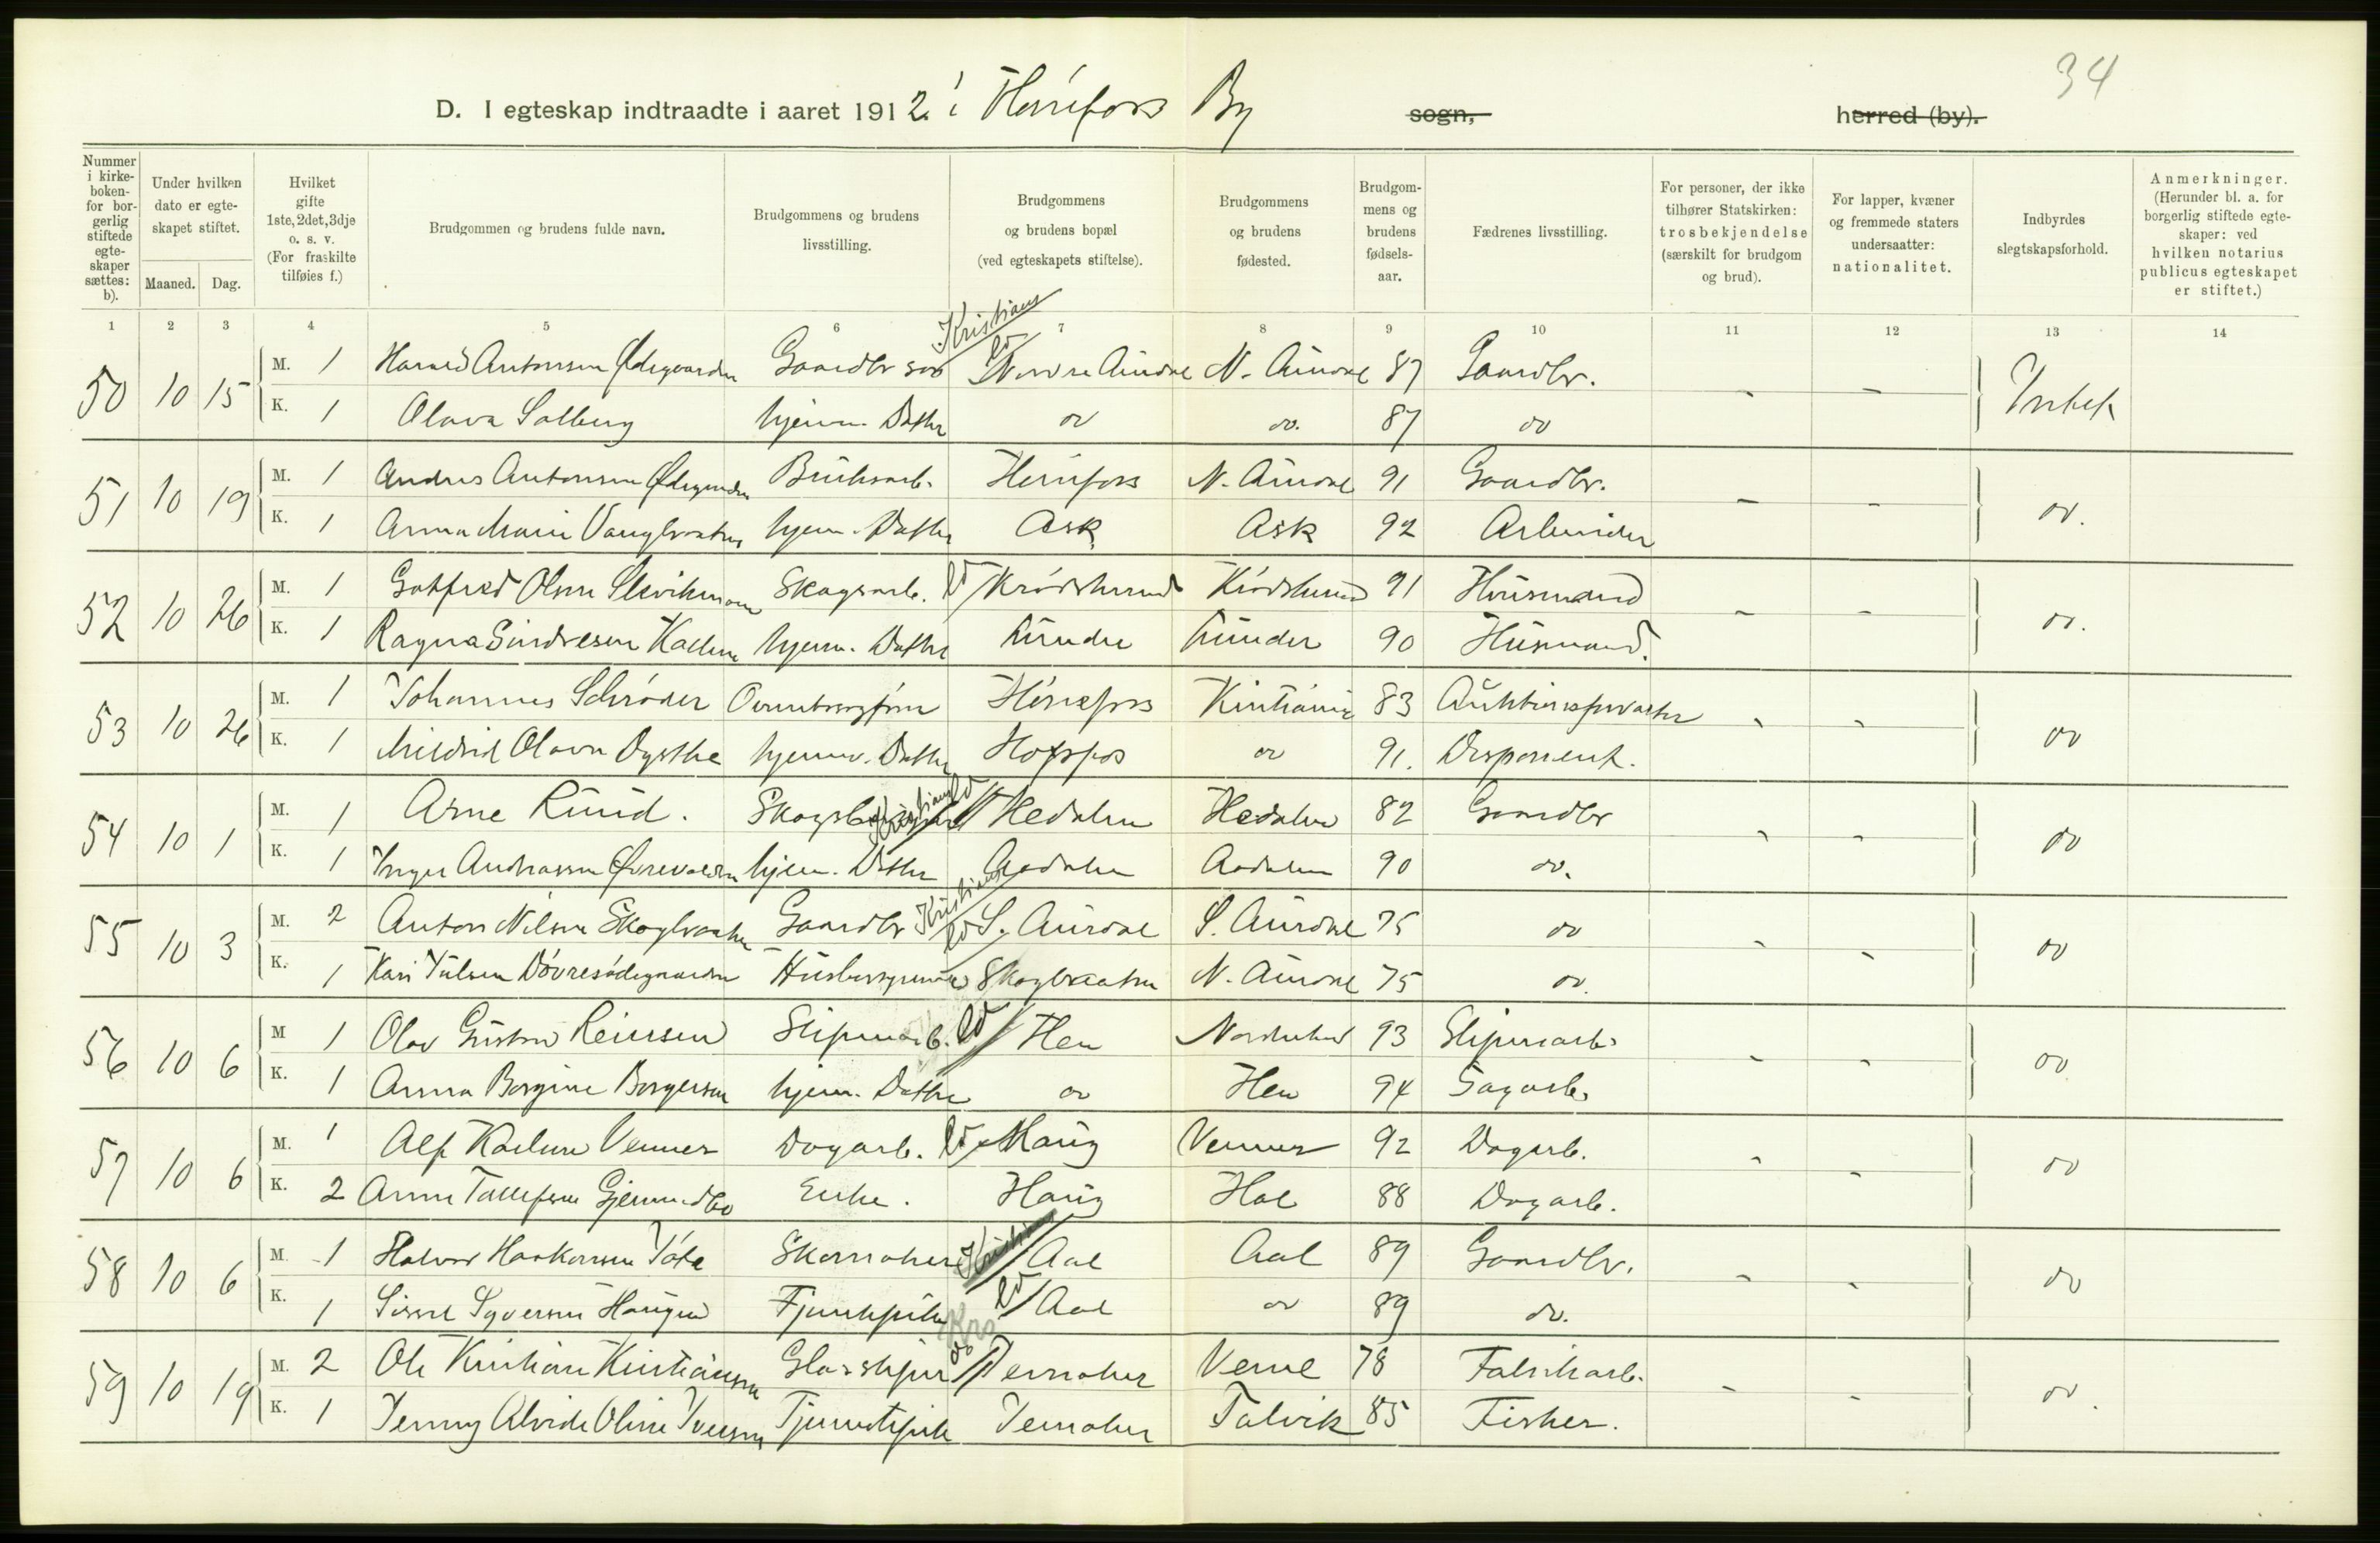 34
D. I egteskap indtraadte i aaret 1912 i Hønefoss By sogn, herred (by).
Nummer i kirkeboken- for borgerlig stiftede egteskaper sættes: b).
Under hvilken dato er egteskapet stiftet.
Maaned. Dag.
Hvilket gifte 1ste, 2det, 3dje o. s. v. (For fraskilte tilføies f.)
Brudgommen og brudens fulde navn.
Brudgommens og brudens livsstilling.
Brudgommens og brudens bopæl (ved egteskapets stiftelse).
Brudgommens og brudens fødested.
Brudgommens og brudens fødselsaar.
Fædrenes livsstilling.
For personer, der ikke tilhører Statskirken: trosbekjendelse (særskilt for brudgom og brud).
For lapper, kvæner og fremmede staters undersaatter: nationalitet.
Indbyrdes slegtskapsforhold.
Anmerkninger. (Herunder bl. a. for borgerlig stiftede egteskaper: ved hvilken notarius publicus egteskapet er stiftet.)
1 2 3 4 5 6 7 8 9 10 11 12 13 14
Kristians
50 10 15 M. 1 Harald Antonsen Ødegaarden Gaardbr søn Nordre Aurdal N. Aurdal 87 Gaardbr. - - Intet
K. 1 Olava Solberg hjem. Datter do do. 87 do
51 10 19 M. 1 Andres Antonsen Ødegaarden Bruksarb. Hønefoss N. Aurdal 91 Gaardbr. - - do.
K. 1 Anna Marie hjem. Datter Ask Ask 92 Arbeider
52 10 26 M. 1 Gotfred Olsen Skogsarb. Krødsherred Krødsherred 91 Husmand - - do.
K. 1 Ragna hjem. Datter Lunder Lunder 90 Husmand.
53 10 26 M. 1 Johannes Schrøder Hønefoss Kristiania 83 - - do
K. 1 Mildrid Olava Dysthe hjemv. Datter Hofsfos do 91. Disponent.
54 10 1 M. 1 Arne Ruud. Hedalen Hedalen 82 Gaardbr - - do
K. 1 Inger hjem. Datter Aadalen Aadalen 90 do.
Kristians
55 10 3 M. 2 Anton Nilsen Skogbraaten Gaardbr S. Aurdal S. Aurdal 75 do - - do
K. 1 Kari Husbestyrerinde Skogbraaten N. Aurdal 75 do.
56 10 6 M 1 Olav Gustav Reiersen Sliperiarb. Hen Norderhov 93 Sliperiarb. - - do
K. 1 Anna Borgine Borgersen hjem. Datter do Hen 94 Sagarb.
57 10 6 M. 1 Alf Karlsen Venner Dagarb. Haug Venner 92 Dagarb. - - do
K. 2 Anne Tollefsen Enke. Haug Hol 88 Dagarb.
58 10 6 M. 1 Halvor Haakonsen Skomaker Aal Aal 89 Gaardbr. - - do
K. 1 Sissel Syversen Haugen Tjenestepike Aal do 89 do.
Krs
59 10 19 M. 2 Ole Kristian Kristiansen Jevnaker 78 Fabrikarb. - - do.
K. 1 Jenny Alvide Oline Iversen Tjenestepike Jevnaker Talvik 85 Fisker.